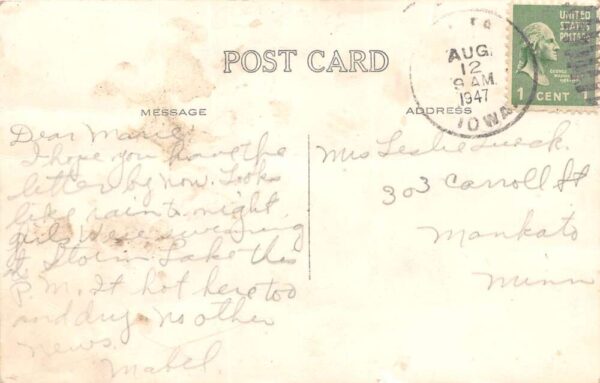 POST CARD
MESSAGE
ADDRESS
TA
AUG
12
9 AM
1947
IOWA
UNITED
STATES
POSTAGE
1 CENT 1
Dear Marie:
I hope you have the
letter by now. Looks
like rain to night.
girls were swimming
at Storm Lake this
P.M. It hot here too
and dry no other
news.
Mabel.
Mrs Leslie
303 Carroll St
Mankato
Minn